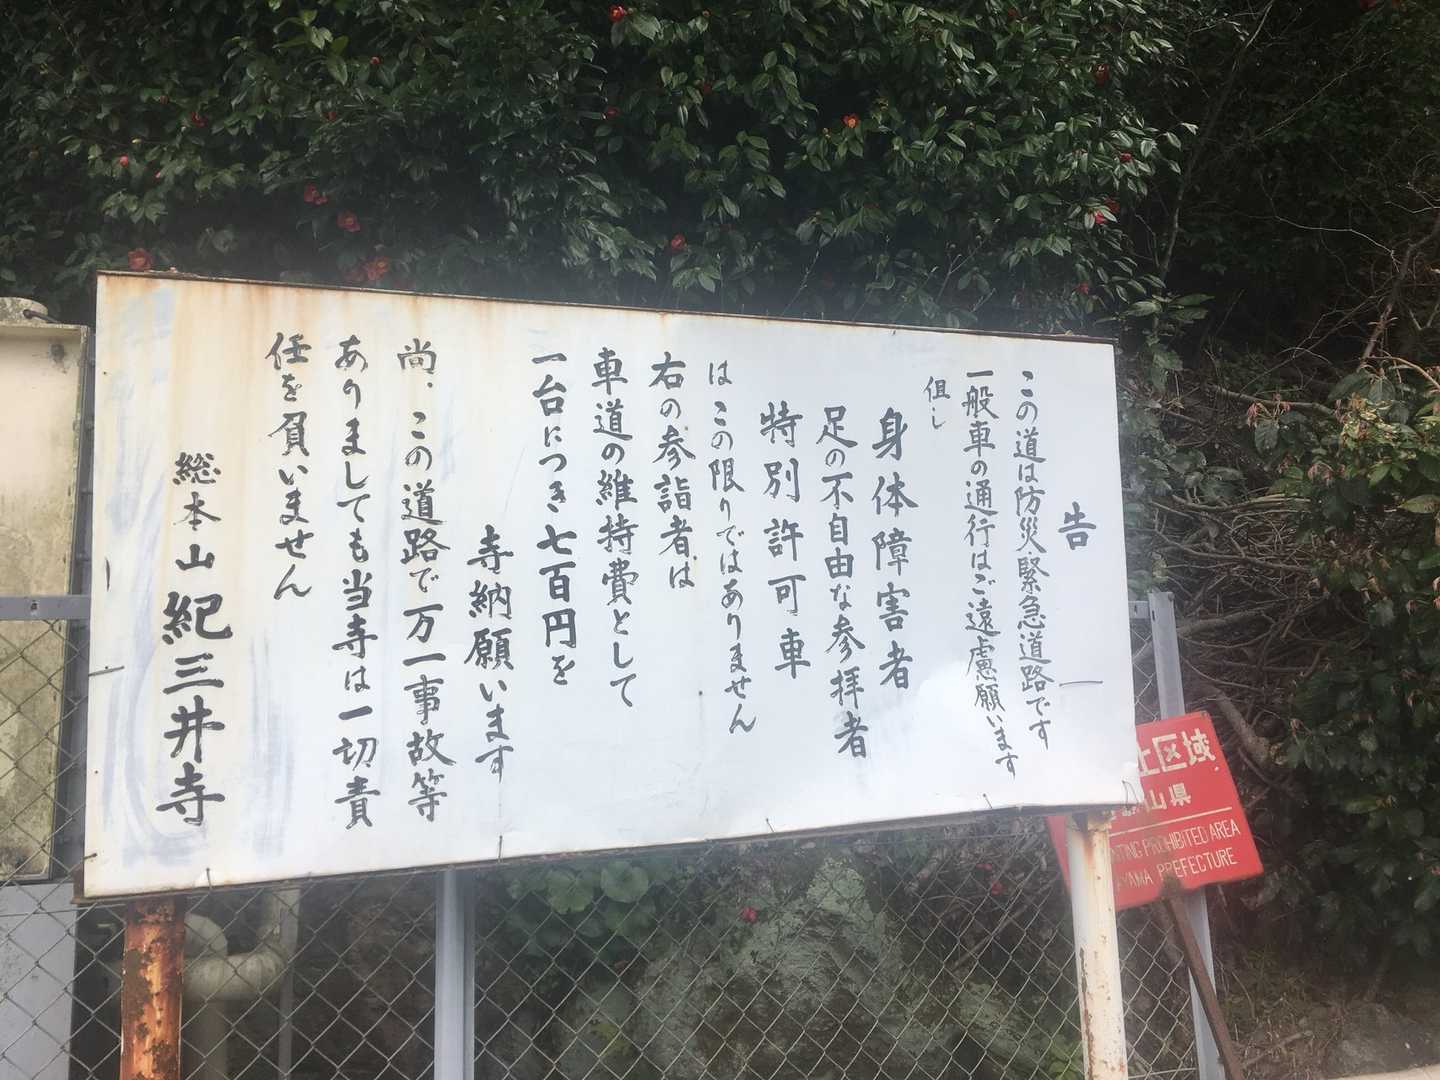 告
この道は防災・緊急道路です
一般車の通行はご遠慮願います
但し
身体障害者
足の不自由な参拝者
特別許可車
はこの限りではありません
右の参詣者は
車道の維持費として
一台につき七百円を
寺納願います
尚、この道路で万一事故等
ありましても当寺は一切責
任を負いません
総本山紀三井寺
止区域
山県
PROHIBITED AREA
PREFECTURE